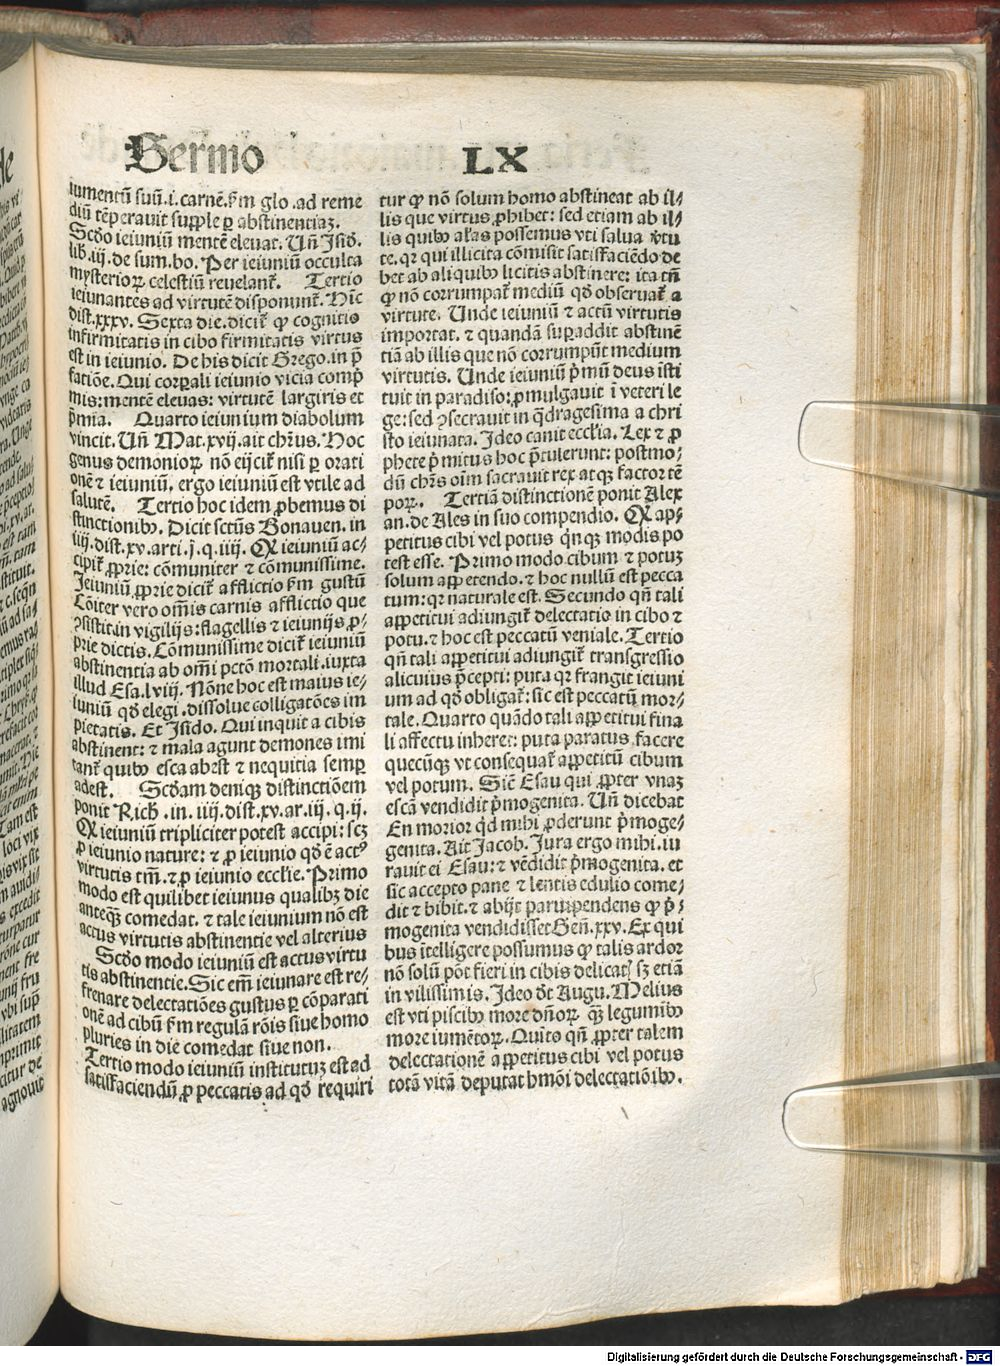 Sermo LX
iumentū suū.i.carnē.ẜm glo.ad reme
diū tēperauit supple ꝑ abstinentiaꝫ.
Scďo ieiuniū mentē eleuat. Uñ Isiď.
lib.iij.de sum.bo. Per ieiuniū occulta
mysterioꝝ celestiū reuelant̃. Tertio
ieiunantes ad virtutē disponunt̃. Hinc
dist.xxxv. Sexta die.dicit̃ ꝙ cognitis
infirmitatis in cibo firmitatis virtus
est in ieiunio. De his dicit Grego.in p̄
fatiōe. Qui corꝑali ieiunio vicia comp̄
mis: mentē eleuas: virtutē largiris et
p̄mia. Quarto ieiunium diabolum
vincit. Uñ Mat.xvij.ait chr̄us. Hoc
genus demonioꝝ nō eijcit̃ nisi ꝑ orati
onē ⁊ ieiuniū, ergo ieiuniū est vtile ad
salutē. Tertio hoc idem ꝓbemus di
stinctionibꝰ. Dicit sctūs Bonauen. in
iiij.dist.xv.arti.j.q.iiij. Ꝙ ieiuniū ac⸗
cipit̃ ꝓprie: cōmuniter ⁊ cōmunissime.
Ieiuniū ꝓprie dicit̃ afflictio ẜm gustū
Cōiter vero om̄is carnis afflictio que
ꝯsistit in vigilijs: flagellis ⁊ ieiunijs ꝓ⸗
prie dictis. Cōmunissime dicit̃ ieiuniū
abstinentia ab om̄i pctō mortali.iuxta
illud Esa.lviij. Nōne hoc est maius ie⸗
iuniū qď elegi.dissolue colligatōes im
pietatis. Et Isido. Qui inquit a cibis
abstinent: ⁊ mala agunt demones imi
tant̃ quibꝰ esca abest ⁊ nequitia semꝑ
adest. Scďam deniqꝫ distinctiōem
ponit Rich.in.iiij.dist.xv.ar.iij.q.ij.
Ꝙ ieiuniū tripliciter potest accipi: scꝫ
ꝓ ieiunio nature: ⁊ ꝓ ieiunio qď ē actꝰ
virtutis tm̄.⁊ ꝓ ieiunio ecclie. Primo
modo est quilibet ieiunus qualibꝫ die
anteqꝫ comedat.⁊ tale ieiunium nō est
actus virtutis abstinentie vel alterius
Scďo modo ieiuniū est actus virtu
tis abstinentie. Sic em̄ ieiunare est re⸗
frenare delectatiōes gustus ꝑ cōparati
onē ad cibū ẜm regulā rōis siue homo
pluries in die comedat siue non.
Tertio modo ieiuniū institutuꝫ est ad
satisfaciendū ꝓ peccatis ad qď requiri
tur ꝙ nō solum homo abstineat ab il⸗
lis que virtus ꝓhibet: sed etiam ab il⸗
lis quibꝰ al̄as possemus vti salua v̄tu
te.qꝛ qui illicita cōmisit satisfaciēdo de
bet ab aliquibꝰ licitis abstinere: ita tñ
ꝙ nō corrumpat̃ mediū qď obseruat̃ a
virtute. Unde ieiuniū ⁊ actū virtutis
importat. ⁊ quandā suꝑaddit abstinē
tiā ab illis que nō corrumpūt medium
virtutis. Unde ieiuniū p̄mū deus isti
tuit in paradiso: ꝓmulgauit ī veteri le
ge: sed ꝯsecrauit in q̄dragesima a chri
sto ieiunata. Ideo canit eccl̄ia. Lex ⁊ ꝓ
phete p̄mitus hoc p̄tulerunt: postmo⸗
dū chr̄s oīm sacrauit rex atqꝫ factor tē
poꝝ. Tertiā distinctionē ponit Alex
an.de Ales in suo compendio. Ꝙ ap⸗
petitus cibi vel potus q̇nqꝫ modis po
test esse. Primo modo cibum ⁊ potuꝫ
solum appetendo.⁊ hoc nullū est pecca
tum: qꝛ naturale est. Secundo qñ tali
appetitui adiungit̃ delectatio in cibo ⁊
potu.⁊ hoc est peccatū veniale. Tertio
qñ tali appetitui adiungit̃ transgressio
alicuius p̄cepti: puta qꝛ frangit ieiuni
um ad qď obligat̃: sic est peccatū mor⸗
tale. Quarto quādo tali appetitui fina
li affectu inheret: puta paratus facere
quecūqꝫ vt consequat̃ appetitū cibum
vel potum. Sicē Esau qui ꝓpter vnaꝫ
escā vendidit p̄mogenita. Uñ dicebat
En morior q̇d mihi ꝓderunt p̄moge⸗
genita. Ait Jacob. Jura ergo mihi.iu
rauit ei Esau: ⁊ vēdidit p̄mogenita. et
sic accepto pane ⁊ lentis edulio come⸗
dit ⁊ bibit.⁊ abijt paruipendens ꝙ p̄⸗
mogenita vendidisset Geñ.xxv. Ex qui
bus ītelligere possumus ꝙ talis ardor
nō solū pōt fieri in cibis delicatꝭ sꝫ etiā
in vilissimis. Ideo ďt Augu. Melius
est vti piscibꝰ more dñoꝝ qꝫ legumibꝰ
more iumētoꝝ. Quīto qñ ꝓpter talem
delectationē appetitus cibi vel potus
totā vitā deputat hmōi delectatiōibꝰ.
Digitalisierung gefördert durch die Deutsche Forschungsgemeinschaft - DFG